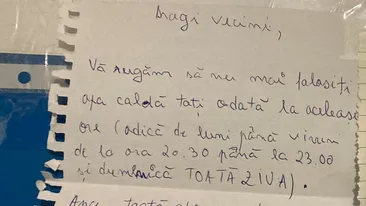 Dragi vecini,
Vă rugăm să nu mai folosiți
apa caldă toți odată la aceleași
ore (adică de luni până vineri
de la ora 20.30 până la 23.00
și duminică TOATĂ ZIUA).